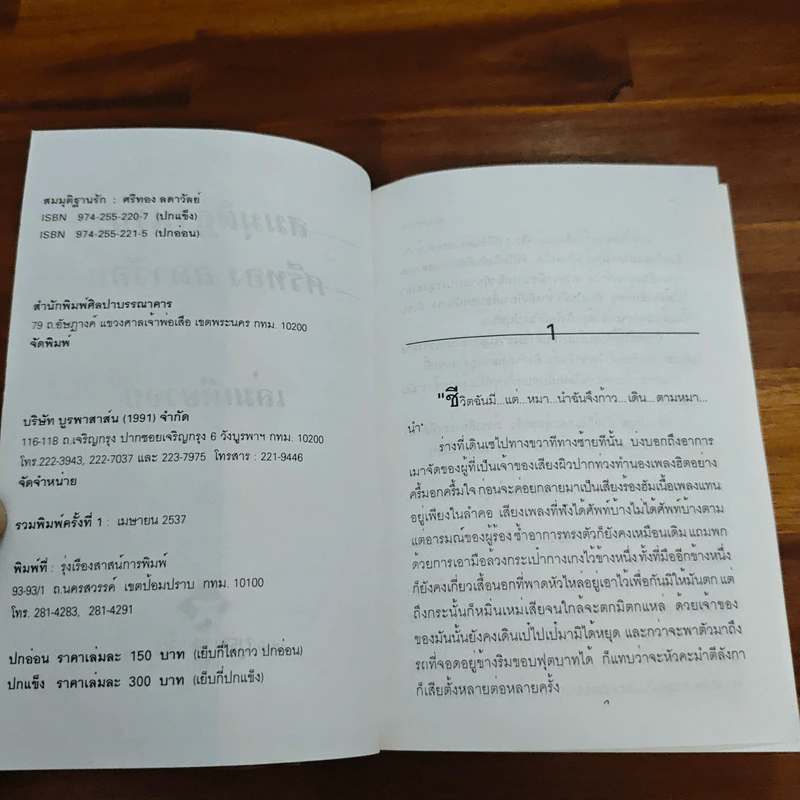 สมมุติฐานรัก : ศรีทอง ลดาวัลย์
ISBN 974-255-220-7 (ปกแข็ง)
ISBN 974-255-221-5 (ปกอ่อน)
สำนักพิมพ์ศิลปาบรรณาคาร
79 ถ.อัษฎางค์ แขวงศาลเจ้าพ่อเสือ เขตพระนคร กทม. 10200
จัดพิมพ์
บริษัท บูรพาสาส์น (1991) จำกัด
116-118 ถ.เจริญกรุง ปากซอยเจริญกรุง 6 วังบูรพาฯ กทม. 10200
โทร.222-3943, 222-7037 และ 223-7975 โทรสาร : 221-9446
จัดจำหน่าย
รวมพิมพ์ครั้งที่ 1 : เมษายน 2537
พิมพ์ที่ : รุ่งเรืองสาส์นการพิมพ์
93-93/1 ถ.นครสวรรค์ เขตป้อมปราบ กทม. 10100
โทร. 281-4283, 281-4291
ปกอ่อน ราคาเล่มละ 150 บาท (เย็บกี่ไสกาว ปกอ่อน)
ปกแข็ง ราคาเล่มละ 300 บาท (เย็บกี่ปกแข็ง)
1
"ชีวิตฉันมี...แต่...หมา...นำฉันจึงก้าว...เดิน...ตามหมา...
นำ"
ร่างที่เดินเซไปทางขวาทีทางซ้ายทีนั้น บ่งบอกถึงอาการ
เมาจัดของผู้ที่เป็นเจ้าของเสียงผิวปากท่วงทำนองเพลงฮิตอย่าง
ครื้มอกครื้มใจ ก่อนจะค่อยกลายมาเป็นเสียงร้องฮัมเนื้อเพลงแทน
อยู่เพียงในลำคอ เสียงเพลงที่ฟังได้ศัพท์บ้างไม่ได้ศัพท์บ้างตาม
แต่อารมณ์ของผู้ร้อง ซ้ำอาการทรงตัวก็ยังคงเหมือนเดิม แถมพก
ด้วยการเอามือล้วงกระเป๋ากางเกงไว้ข้างหนึ่ง ทั้งที่มืออีกข้างหนึ่ง
ก็ยังคงเกี่ยวเสื้อนอกที่พาดหัวไหล่อยู่เอาไว้เพื่อกันมิให้มันตก แต่
ถึงกระนั้นก็หมิ่นเหม่เสียจนใกล้จะตกมิตกแหล่ ด้วยเจ้าของ
ของมันนั้นยังคงเดินเป๋ไปเป๋มามิได้หยุด และกว่าจะพาตัวมาถึง
รถที่จอดอยู่ข้างริมขอบฟุตบาทได้ ก็แทบว่าจะหัวคะมำตีลังกา
ก็เสียตั้งหลายต่อหลายครั้ง